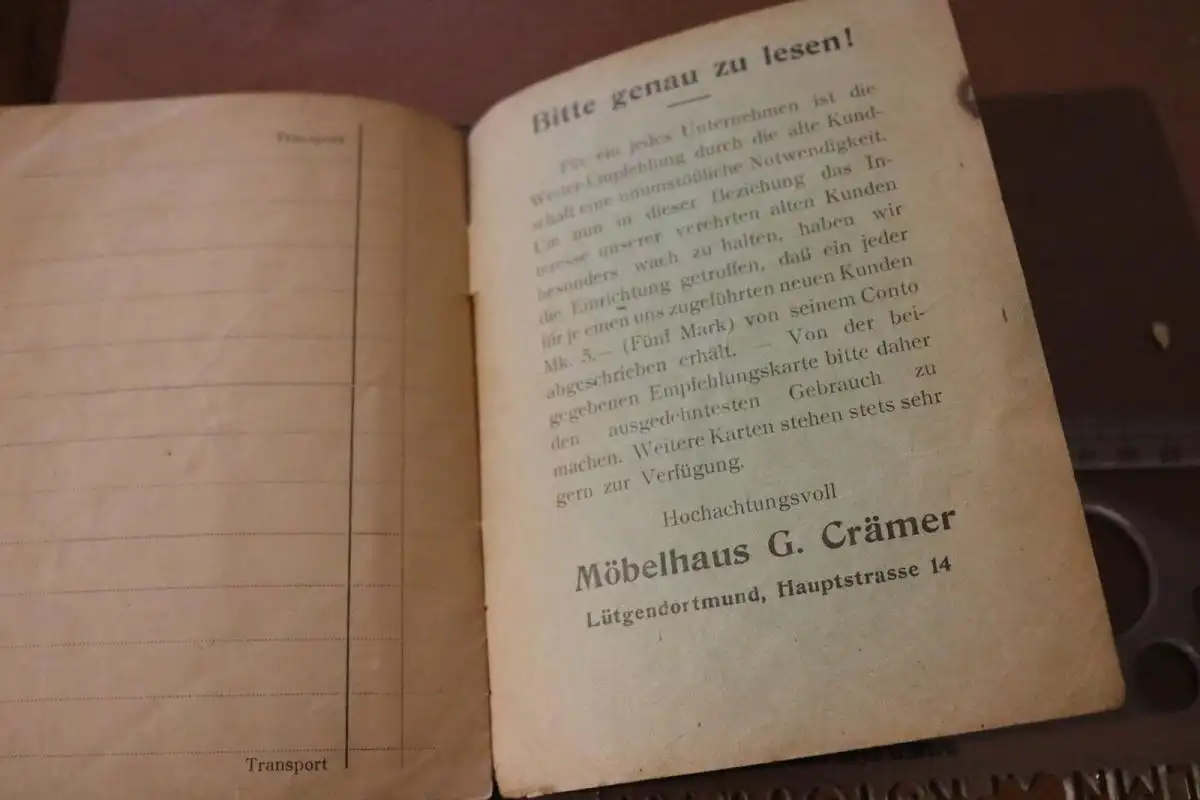 Transport
Transport
Bitte genau zu lesen!
Für ein jedes Unternehmen ist die
Weiter-Empfehlung durch die alte Kund-
schaft eine unumstößliche Notwendigkeit.
Um nun in dieser Beziehung das In-
teresse unserer verehrten alten Kunden
besonders wach zu halten, haben wir
die Einrichtung getroffen, daß ein jeder
für je einen uns zugeführten neuen Kunden
Mk. 5.— (Fünf Mark) von seinem Conto
abgeschrieben erhält. — Von der bei-
gegebenen Empfehlungskarte bitte daher
den ausgedehntesten Gebrauch zu
machen. Weitere Karten stehen stets sehr
gern zur Verfügung.
Hochachtungsvoll
Möbelhaus G. Crämer
Lütgendortmund, Hauptstrasse 14